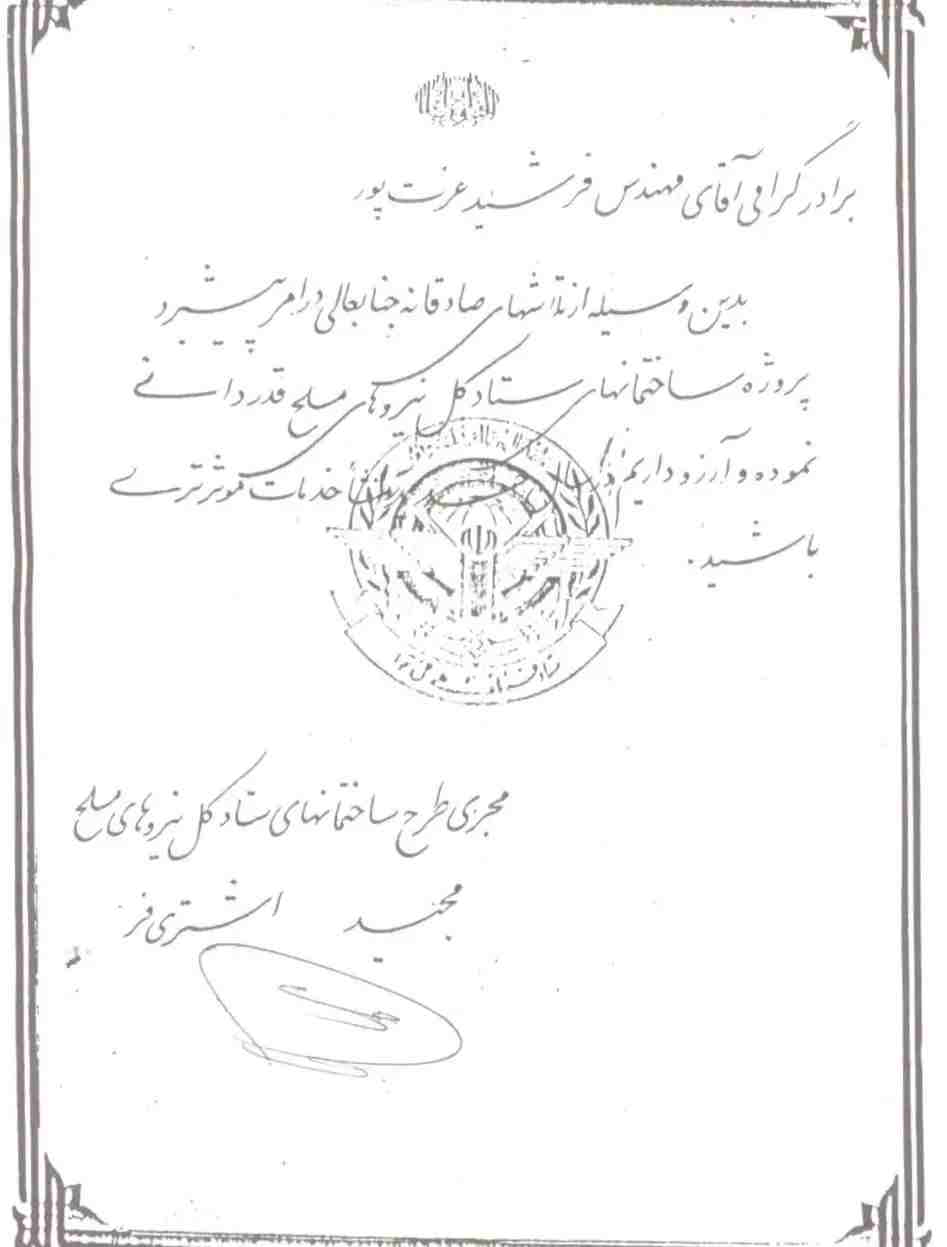 برادر گرامی آقای مهندس فرشید عزت پور
بدین وسیله از تلاشهای صادقانه جنابعالی در امر پیشبرد
پروژه ساختمانهای ستاد کل نیروهای مسلح قدردانی
نموده و آرزو داریم منشأ خدمات موثرتری
باشید.
مجری طرح ساختمانهای ستاد کل نیروهای مسلح
مجید اشتری فر